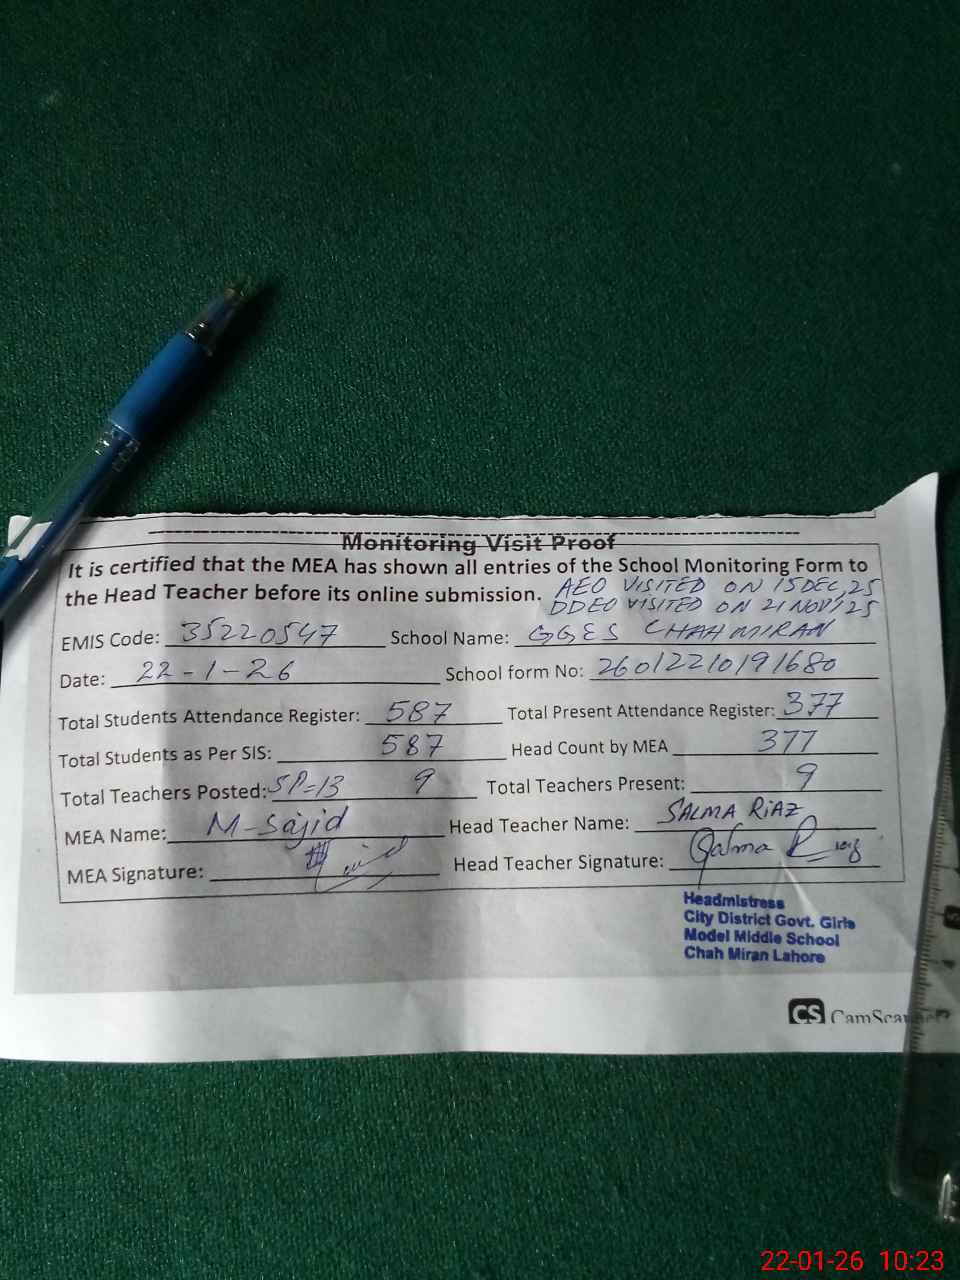 Monitoring Visit Proof
It is certified that the MEA has shown all entries of the School Monitoring Form to
the Head Teacher before its online submission. AEO VISITED ON 15 DEC, 25
DDEO VISITED ON 21 NOV, 25
EMIS Code: 35220547 School Name: GGES CHAH MIRAN
Date: 22-1-26 School form No: 26012210191680
Total Students Attendance Register: 587 Total Present Attendance Register: 377
Total Students as Per SIS: 587 Head Count by MEA 377
Total Teachers Posted: SP=13 9 Total Teachers Present: 9
MEA Name: M-Sajid Head Teacher Name: SALMA RiAZ
MEA Signature: Head Teacher Signature: Salma Riaz
Headmistress
City District Govt. Girls
Model Middle School
Chah Miran Lahore
CS CamScanner
22-01-26 10:23